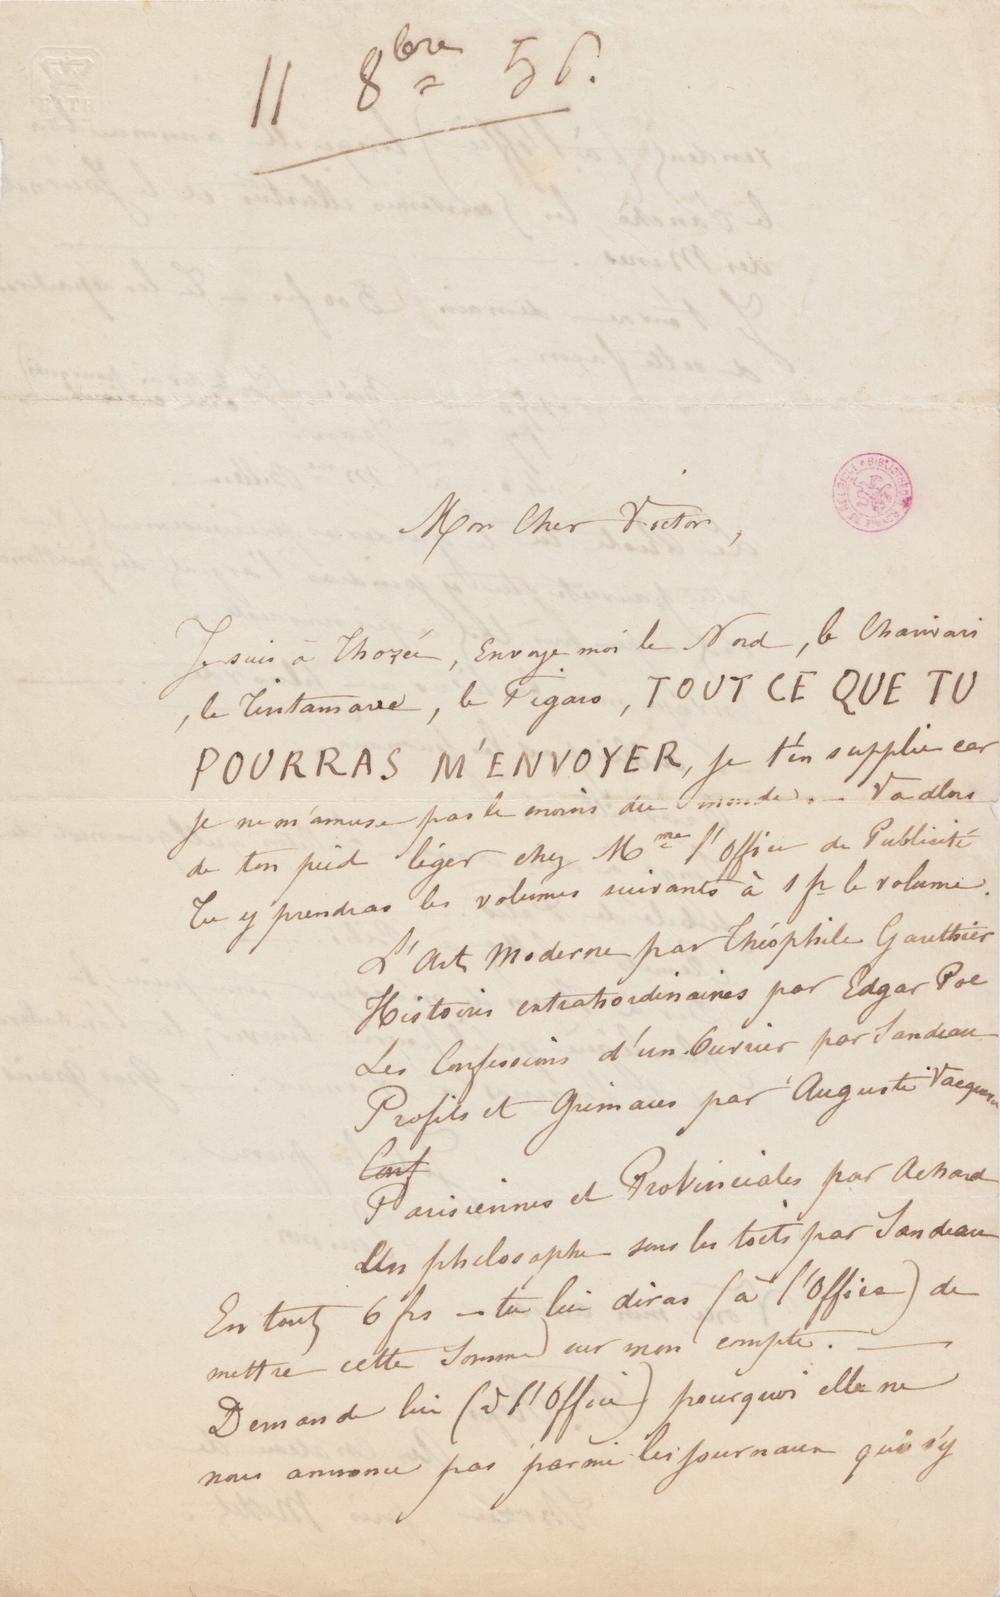 11 8bre 56.
Mon Cher Victor,
Je suis à Thozée, Envoye moi le Nord, le Charivari
, le Tintamarre, le Figaro, TOUT CE QUE TU
POURRAS M'ENVOYER, je t'en supplie car
je ne m'amuse pas le moins du monde. — Va alors
de ton pied léger chez Mme l'Office de Publicité
Tu y prendras les volumes suivants à 1 fr le volume.
L'Art Moderne par Théophile Gauthier
Histoires extrahordinaires par Edgar Poe
Les Confessions d'un Ouvrier par Sandeau
Profils et Grimaces par Auguste Vacquerie
Conf
Parisiennes et Provinciales par Achard
Un philosophe sous les toits par Sandeau
En tout 6 frs — tu lui diras (à l'Office) de
mettre cette somme sur mon compte. —
Demande lui (à l'Office) pourquoi elle ne
nous annonce pas parmi les journaux qui s'y